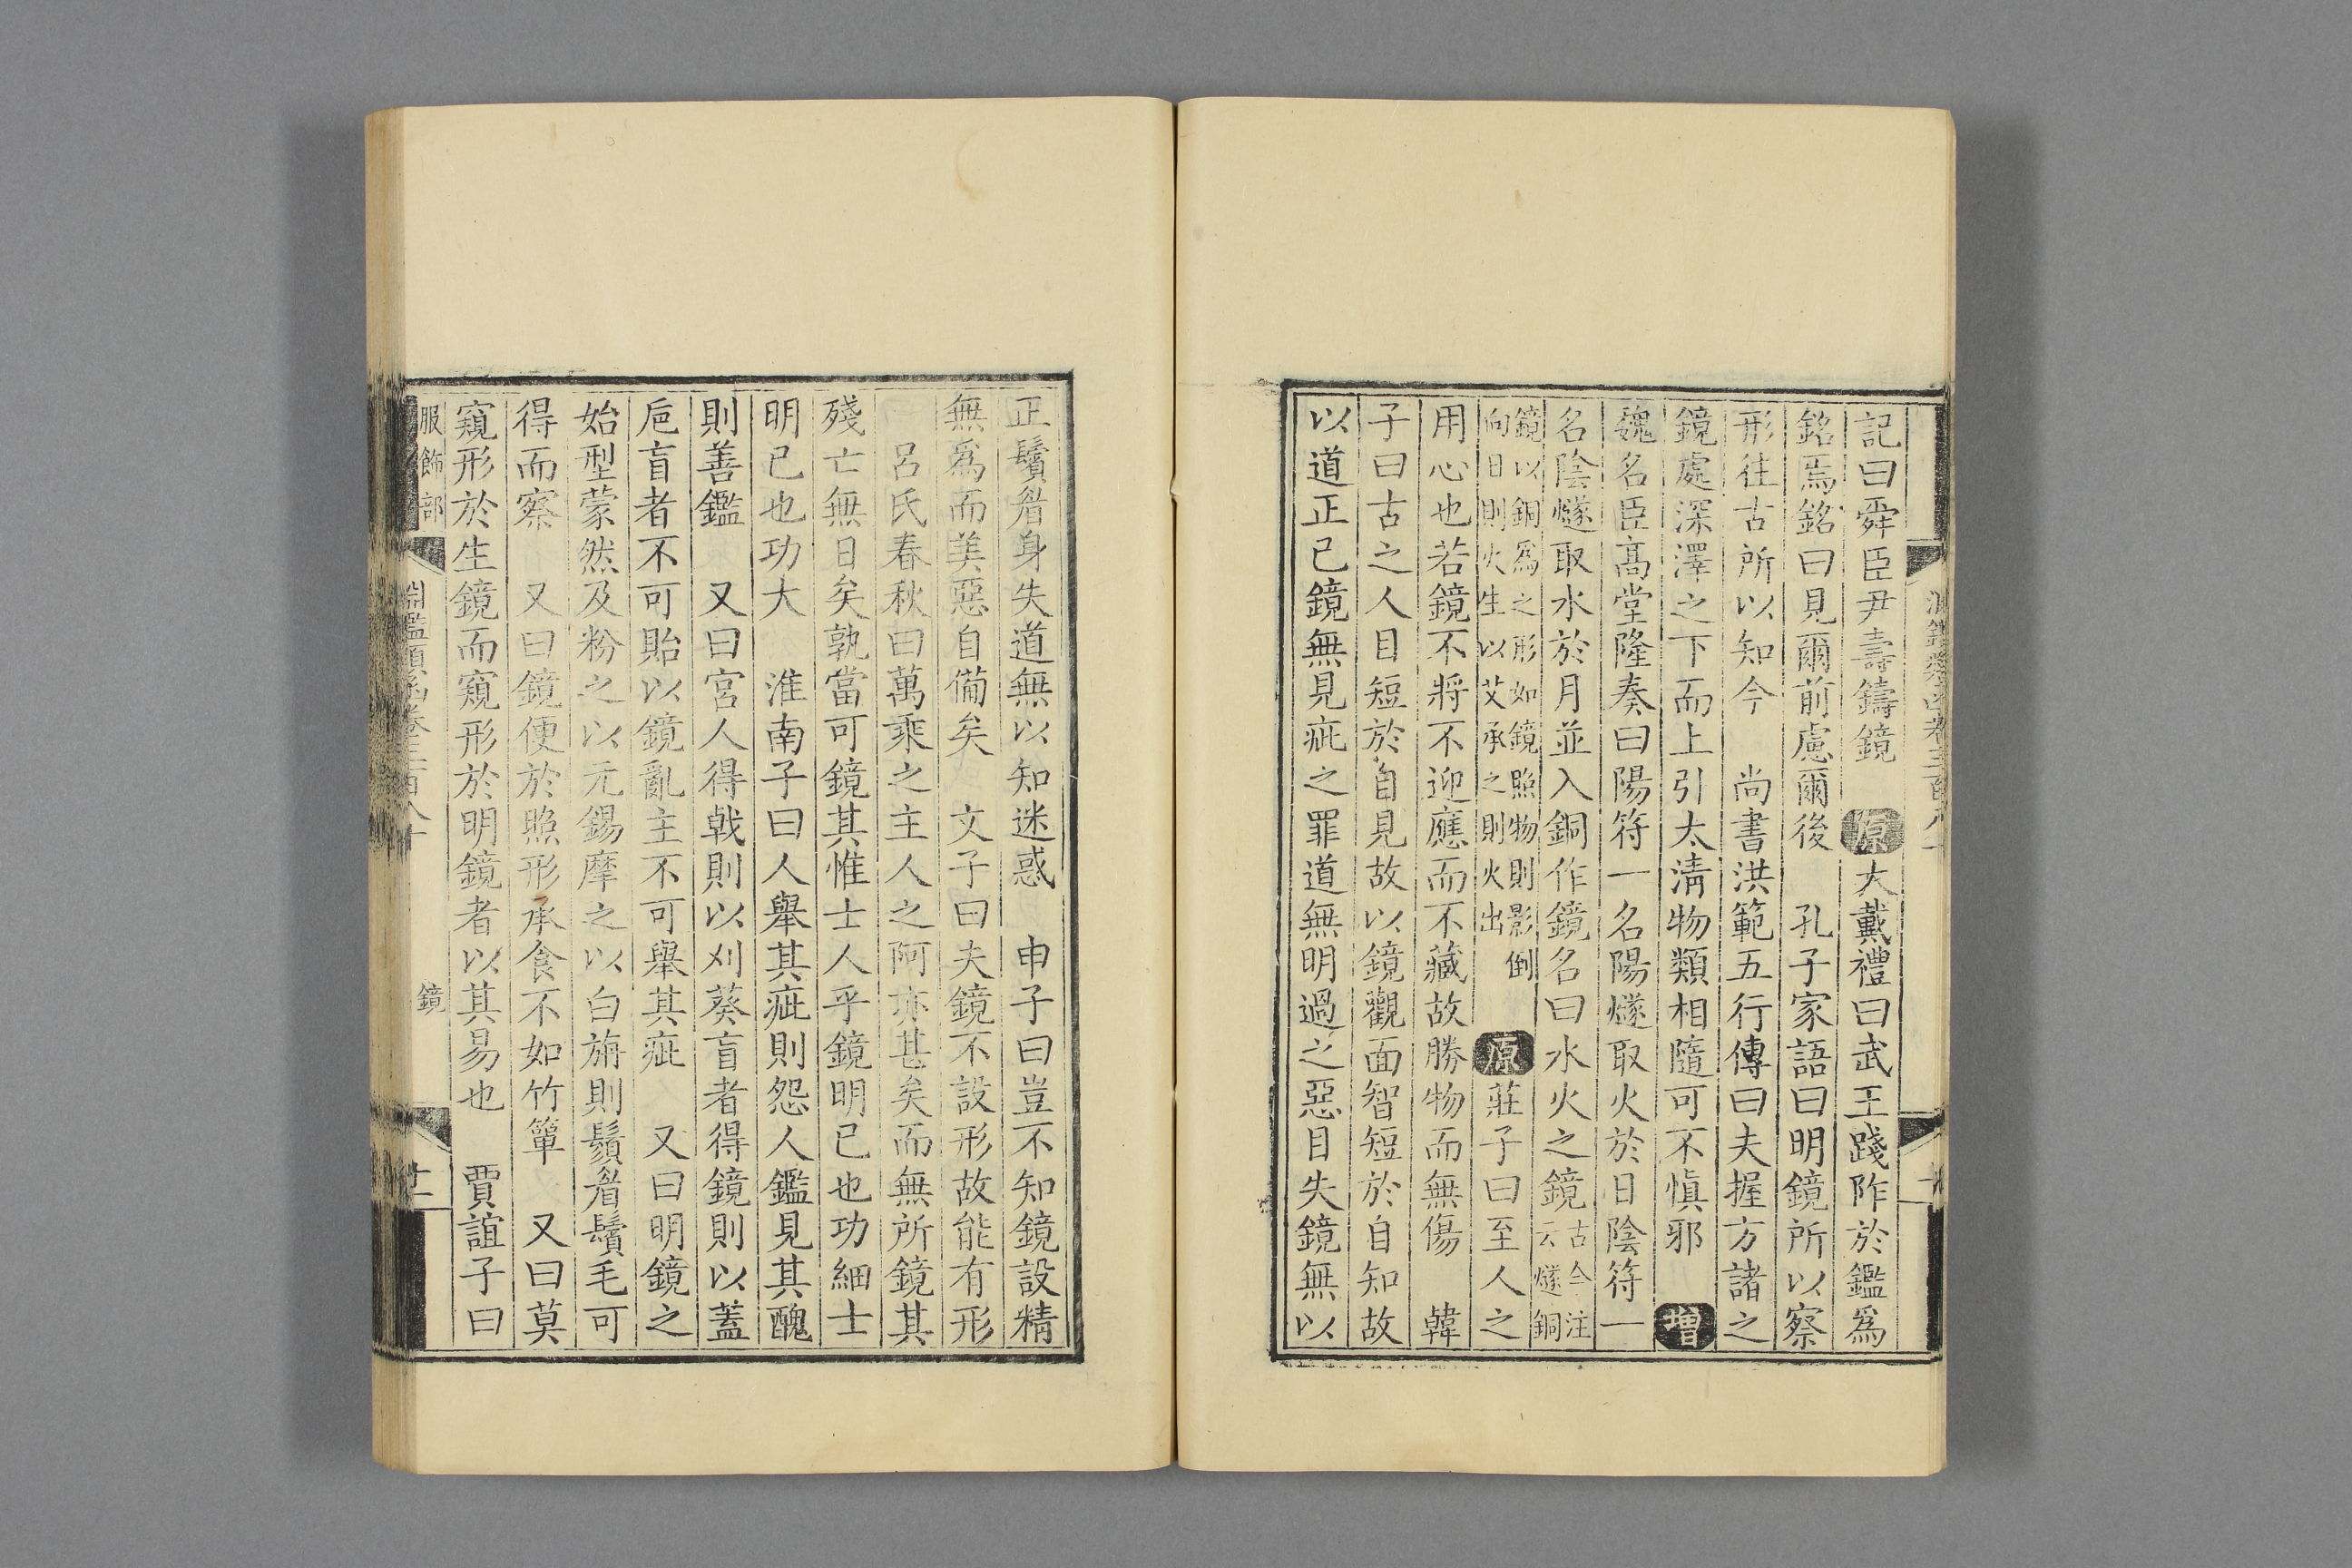 記曰舜臣尹壽鑄鏡　原大戴禮曰武王踐阼於鑑爲
銘焉銘曰見爾前慮爾後　孔子家語曰明鏡所以察
形往古所以知今　尚書洪範五行傳曰夫握方諸之
鏡處深澤之下而上引太淸物類相隨可不愼邪　增
魏名臣高堂隆奏曰陽符一名陽燧取火於日陰符一
名陰燧取水於月並入銅作鏡名曰水火之鏡古今注
云燧銅
鏡以銅爲之形如鏡照物則影倒
向日則火生以艾承之則火出　原莊子曰至人之
用心也若鏡不將不迎應而不藏故勝物而無傷　韓
子曰古之人目短於自見故以鏡觀面智短於自知故
以道正己鏡無見疵之罪道無明過之惡目失鏡無以
正鬚眉身失道無以知迷惑　申子曰豈不知鏡設精
無爲而美惡自備矣　文子曰夫鏡不設形故能有形
呂氏春秋曰萬乘之主人之阿亦甚矣而無所鏡其
殘亡無日矣孰當可鏡其惟士人乎鏡明己也功細士
明己也功大　淮南子曰人舉其疵則怨人鑑見其醜
則善鑑　又曰宮人得戟則以刈葵盲者得鏡則以蓋
巵盲者不可貽以鏡亂主不可舉其疵　又曰明鏡之
始型蒙然及粉之以元錫摩之以白旃則鬚眉鬢毛可
得而察　又曰鏡便於照形承食不如竹簞　又曰莫
窺形於生鏡而窺形於明鏡者以其易也　賈誼子曰
服飾部
淵鑑類函卷三百八十
鏡